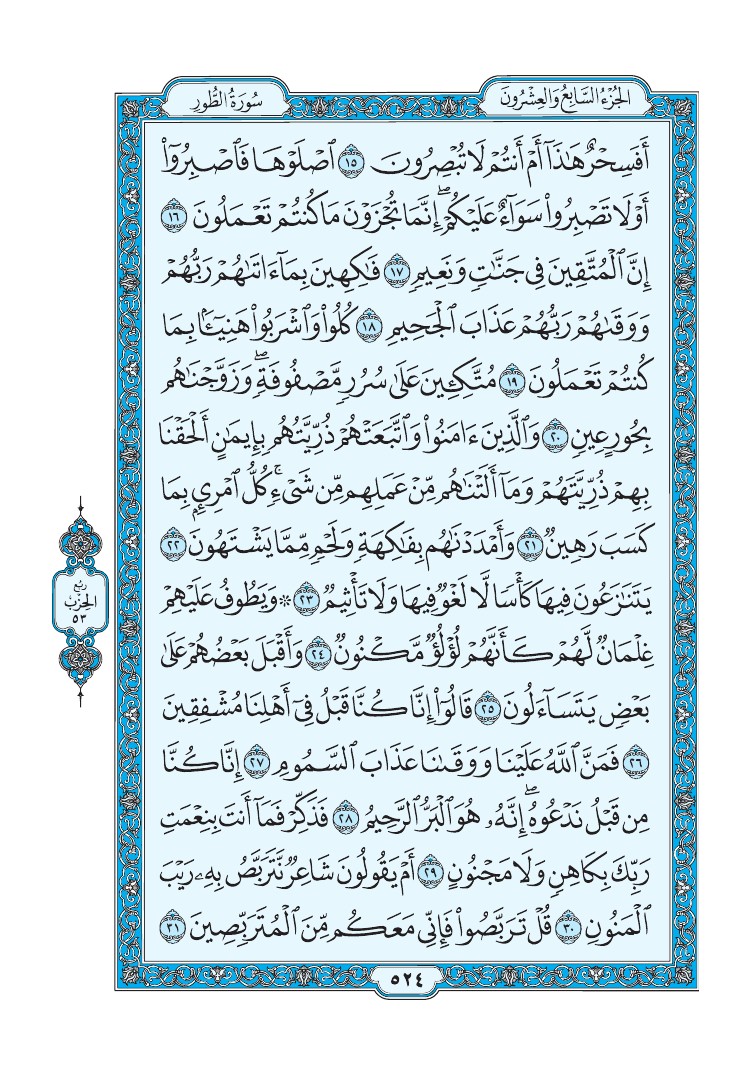 الجزء السابع والعشرون
سورة الطور
أَفَسِحْرٌ هَٰذَآ أَمْ أَنتُمْ لَا تُبْصِرُونَ ١٥ ٱصْلَوْهَا فَٱصْبِرُوٓا۟
أَوْ لَا تَصْبِرُوا۟ سَوَآءٌ عَلَيْكُمْ ۖ إِنَّمَا تُجْزَوْنَ مَا كُنتُمْ تَعْمَلُونَ ١٦
إِنَّ ٱلْمُتَّقِينَ فِى جَنَّٰتٍ وَنَعِيمٍ ١٧ فَٰكِهِينَ بِمَآ ءَاتَىٰهُمْ رَبُّهُمْ
وَوَقَىٰهُمْ رَبُّهُمْ عَذَابَ ٱلْجَحِيمِ ١٨ كُلُوا۟ وَٱشْرَبُوا۟ هَنِيٓـًٔۢا بِمَا
كُنتُمْ تَعْمَلُونَ ١٩ مُتَّكِـِٔينَ عَلَىٰ سُرُرٍ مَّصْفُوفَةٍ ۖ وَزَوَّجْنَٰهُم
بِحُورٍ عِينٍ ٢٠ وَٱلَّذِينَ ءَامَنُوا۟ وَٱتَّبَعَتْهُمْ ذُرِّيَّتُهُم بِإِيمَٰنٍ أَلْحَقْنَا
بِهِمْ ذُرِّيَّتَهُمْ وَمَآ أَلَتْنَٰهُم مِّنْ عَمَلِهِم مِّن شَىْءٍ ۚ كُلُّ ٱمْرِئٍۭ بِمَا
كَسَبَ رَهِينٌ ٢١ وَأَمْدَدْنَٰهُم بِفَٰكِهَةٍ وَلَحْمٍ مِّمَّا يَشْتَهُونَ ٢٢
يَتَنَٰزَعُونَ فِيهَا كَأْسًا لَّا لَغْوٌ فِيهَا وَلَا تَأْثِيمٌ ٢٣ ۞ وَيَطُوفُ عَلَيْهِمْ
غِلْمَانٌ لَّهُمْ كَأَنَّهُمْ لُؤْلُؤٌ مَّكْنُونٌ ٢٤ وَأَقْبَلَ بَعْضُهُمْ عَلَىٰ
بَعْضٍ يَتَسَآءَلُونَ ٢٥ قَالُوٓا۟ إِنَّا كُنَّا قَبْلُ فِىٓ أَهْلِنَا مُشْفِقِينَ
٢٦ فَمَنَّ ٱللَّهُ عَلَيْنَا وَوَقَىٰنَا عَذَابَ ٱلسَّمُومِ ٢٧ إِنَّا كُنَّا
مِن قَبْلُ نَدْعُوهُ ۖ إِنَّهُۥ هُوَ ٱلْبَرُّ ٱلرَّحِيمُ ٢٨ فَذَكِّرْ فَمَآ أَنتَ بِنِعْمَتِ
رَبِّكَ بِكَاهِنٍ وَلَا مَجْنُونٍ ٢٩ أَمْ يَقُولُونَ شَاعِرٌ نَّتَرَبَّصُ بِهِۦ رَيْبَ
ٱلْمَنُونِ ٣٠ قُلْ تَرَبَّصُوا۟ فَإِنِّى مَعَكُم مِّنَ ٱلْمُتَرَبِّصِينَ ٣١
ربع
الحزب
٥٣
٥٢٤